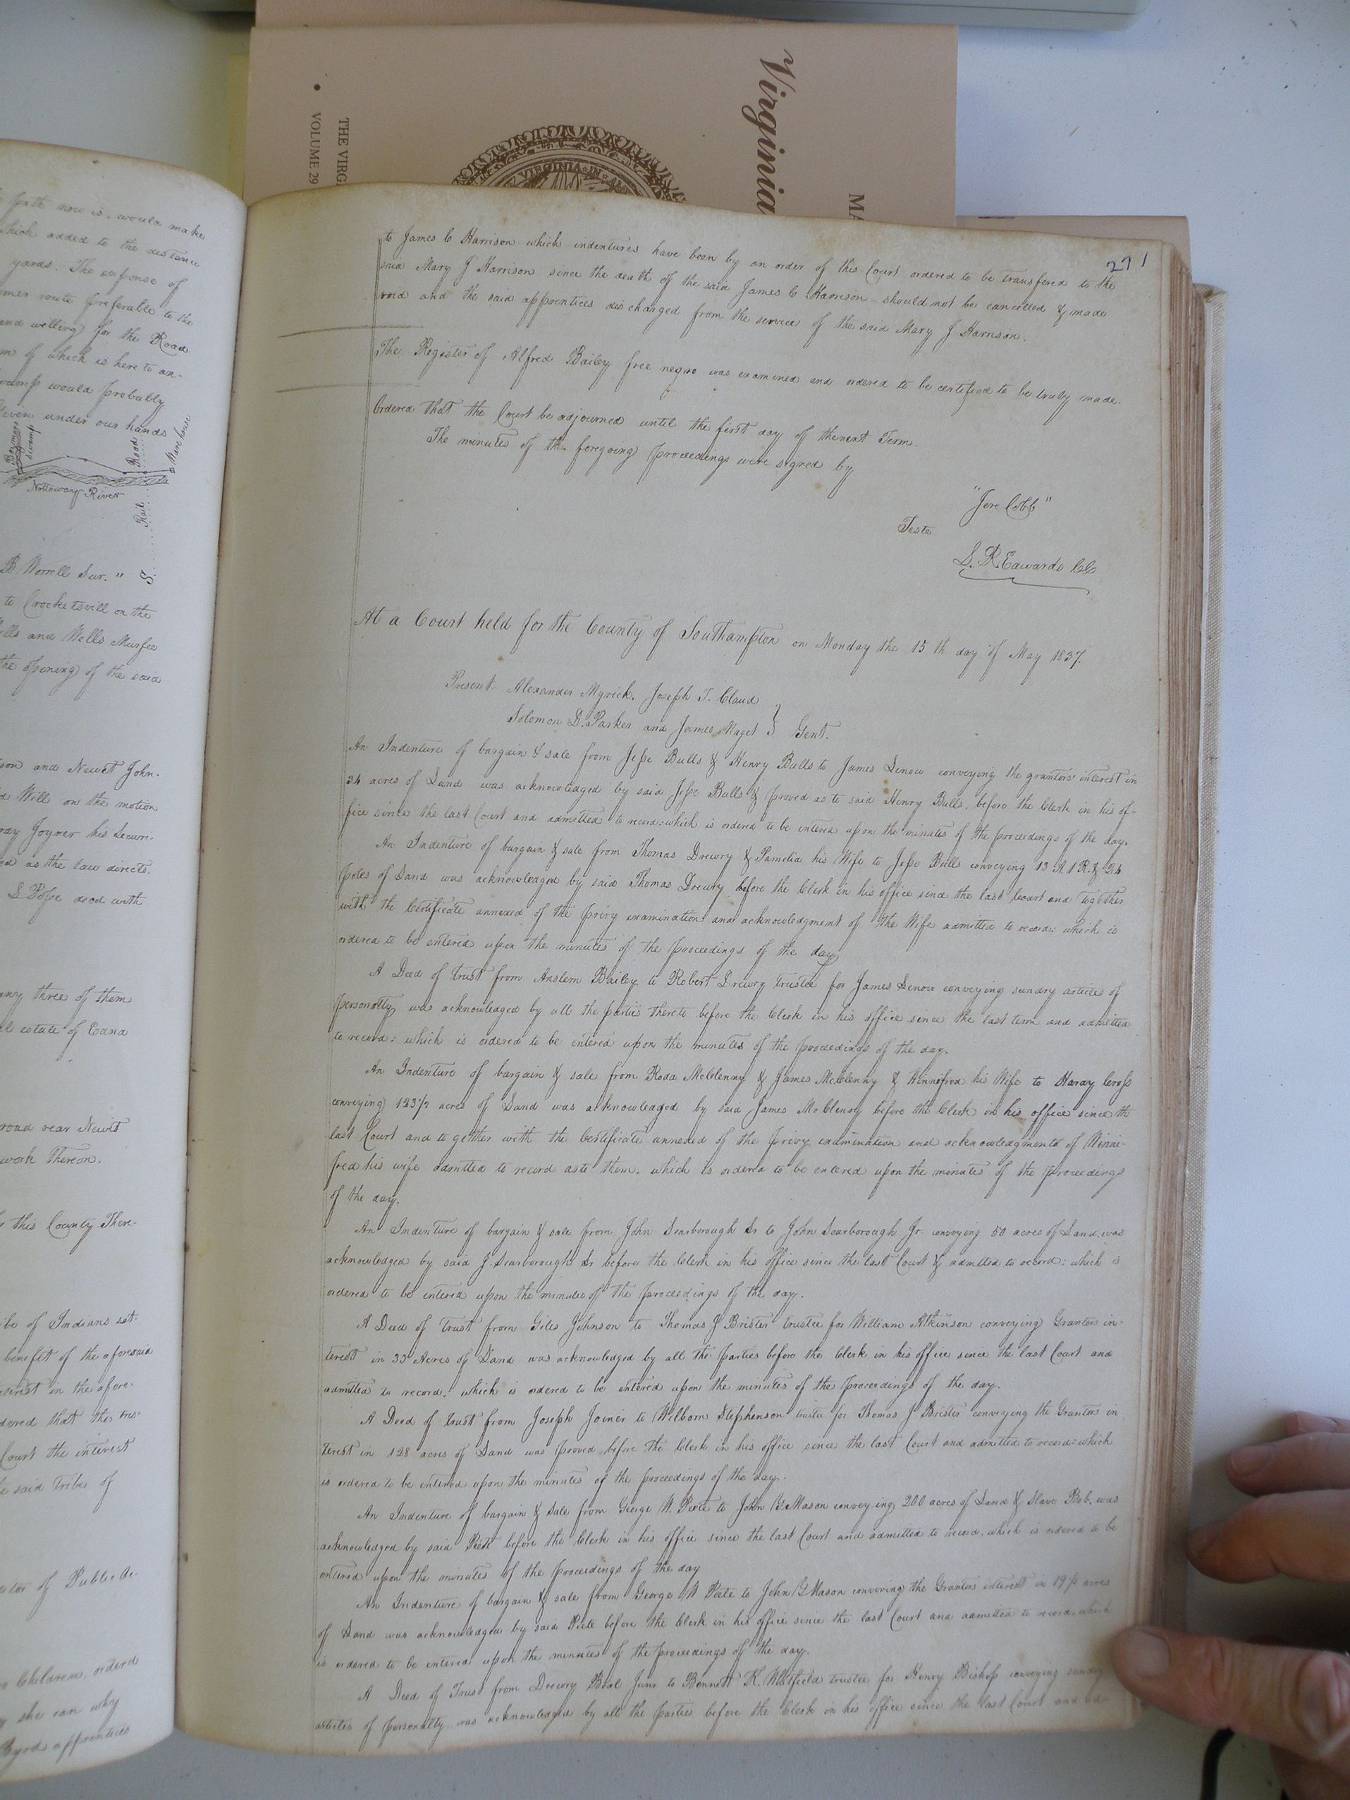 Virginia
THE VIRG
VOLUME 29
MA
VIRGINIA IN
path now is, would make
which added to the distance
yards. The expense of
route preferable to the
and willing) for the Road
of which is here to an-
would probably
Given under our hands
Nottoway River
Road
B Worrell Sur."
to Crocketsvill on the
and Wells Murfee
the opening) of the said
son and Newit John-
Will on the motion
Joyner his Securi-
as the law directs.
decd with
any three of them
estate of Edna
road near Newit
work thereon.
this County There-
tribe of Indians set-
benefit of the aforesaid
interest in the afore-
ordered that the trus-
Court the interest
said tribe of
of Public Ac-
Children, orderd
she can why
Byrds apprentices
271
to James C Harrison which indentures have been by an order of this Court ordered to be transfered to the
said Mary J Harrison since the death of the said James C Harrison should not be cancelled & made
void and the said apprentices discharged from the service of the said Mary J Harrison.
The Register of Alfred Bailey free negro was examined and ordered to be certified to be truly made.
Ordered that the Court be adjourned until the first day of the next Term
The minutes of the foregoing) proceedings were signed by
"Jere Cobb"
Teste
L. R. Edwards Clk
At a Court held for the County of Southampton on Monday the 15th day of May 1837.
Present Alexander Myrick, Joseph T. Claud
Solomon D. Parker and James Maget } Gent.
An Indenture of bargain & sale from Jesse Bulls & Henry Bulls to James Lenow conveying the grantors interest in
24 acres of Land was acknowledged by said Jesse Bulls & proved as to said Henry Bulls, before the Clerk in his of-
fice since the last Court and admitted to record: which is ordered to be entered upon the minutes of the proceedings of the day.
An Indenture of bargain & sale from Thomas Drewry & Pamelia his Wife to Jesse Bulls conveying 13 A 1 R. & 24
poles of Land was acknowledged by said Thomas Drewry before the Clerk in his office since the last Court and together
with the Certificate annexed of the privy examination and acknowledgment of the Wife admitted to record: which is
ordered to be entered upon the minutes of the proceedings of the day
A Deed of trust from Anslem Bailey to Robert Drewry trustee for James Lenow conveying sundry articles of
personalty, was acknowledged by all the parties thereto before the Clerk in his office since the last term and admitted
to record: which is ordered to be entered upon the minutes of the proceedings of the day.
An Indenture of bargain & sale from Roda McClenny & James McClenny & Winnifred his Wife to Haray Cross
conveying) 123 1/2 acres of Land was acknowledged by said James McClenny before the Clerk in his office since the
last Court and together with the Certificate annexed of the privy examination and acknowledgments of Winni-
fred his wife admitted to record as to them: which is ordered to be entered upon the minutes of the proceedings
of the day.
An Indenture of bargain & sale from John Scarborough Sr to John Scarborough Jr. conveying 50 acres of Land was
acknowledged by said J. Scarborough Sr before the Clerk in his office since the last Court & admitted to record: which is
ordered to be entered upon the minutes of the proceedings of the day.
A Deed of trust from Giles Johnson to Thomas J Brister trustee for William Atkinson conveying) Grantors in-
terest in 33 Acres of Land was acknowledged by all the Parties before the Clerk in his office since the last Court and
admitted to record: which is ordered to be entered upon the minutes of the proceedings of the day.
A Deed of trust from Joseph Joiner to Wilborn Stephenson trustee for Thomas J Brister conveying the Grantors in
terest in 128 acres of Land was proved before the Clerk in his office since the last Court and admitted to record: which
is ordered to be entered upon the minutes of the proceedings of the day.
An Indenture of bargain & sale from George W Peete to John G Mason conveying 200 acres of Land & Slave Bob, was
acknowledged by said Peete before the Clerk in his office since the last Court and admitted to record, which is ordered to be
entered upon the minutes of the proceedings of the day
An Indenture of bargain & sale from George W Peete to John G Mason conveying the Grantors interest in acres
of Land was acknowledged by said Peete before the Clerk in his office since the last Court and admitted to record: which
is ordered to be entered upon the minutes of the proceedings of the day.
A Deed of Trust from Drewry Beal Junr to Bennett K. Whitfield trustee for Henry Bishop conveying sundry
articles of personalty was acknowledged by all the Parties before the Clerk in his office since the last Court and ad-